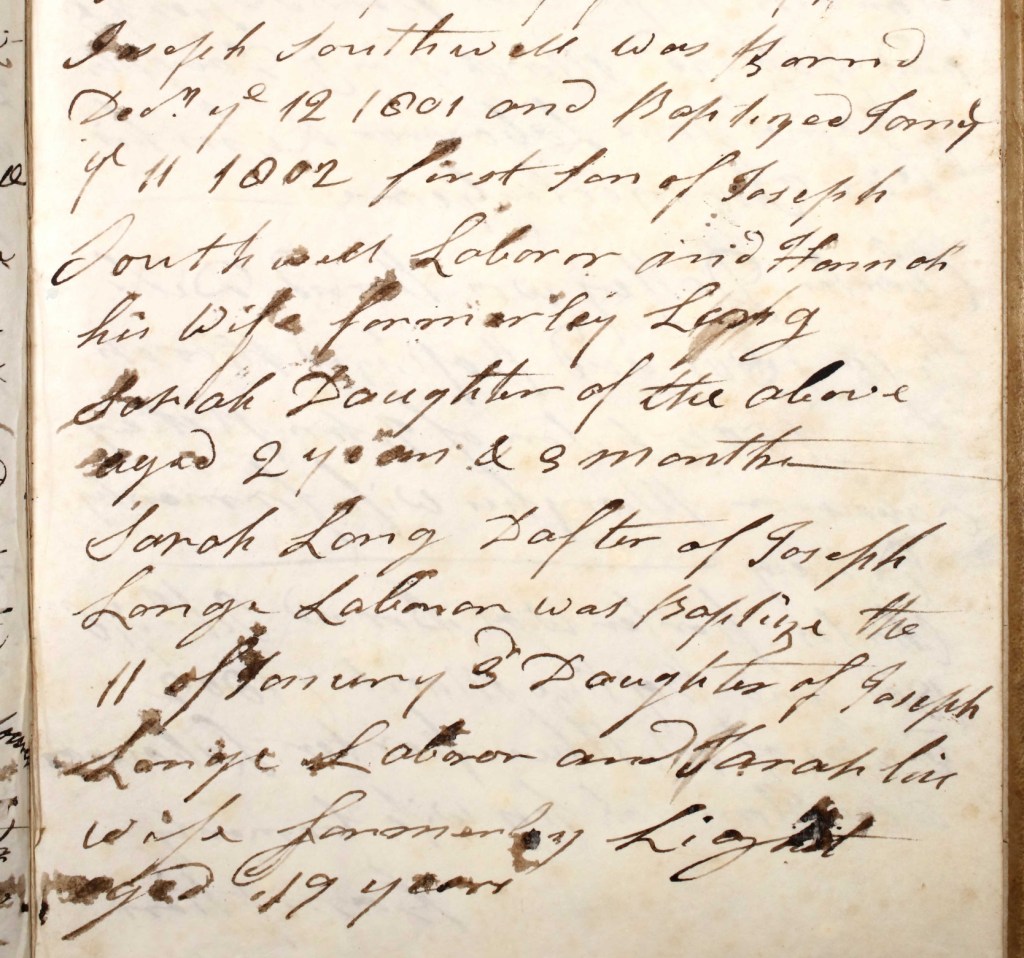 Joseph Southwell was Bornd
Decm ye 12 1801 and Baptized Janry
ye 11 1802 first Son of Joseph
Southwell Laboror and Hannah
his Wife formerley Long
Sarah Daughter of the above
aged 2 years & 3 months
Sarah Long Dafter of Joseph
Longe Laboror was Baptize the
11 of Janury 3d Daughter of Joseph
Longe Laboror and Sarah his
wife formerley Light
aged 19 years